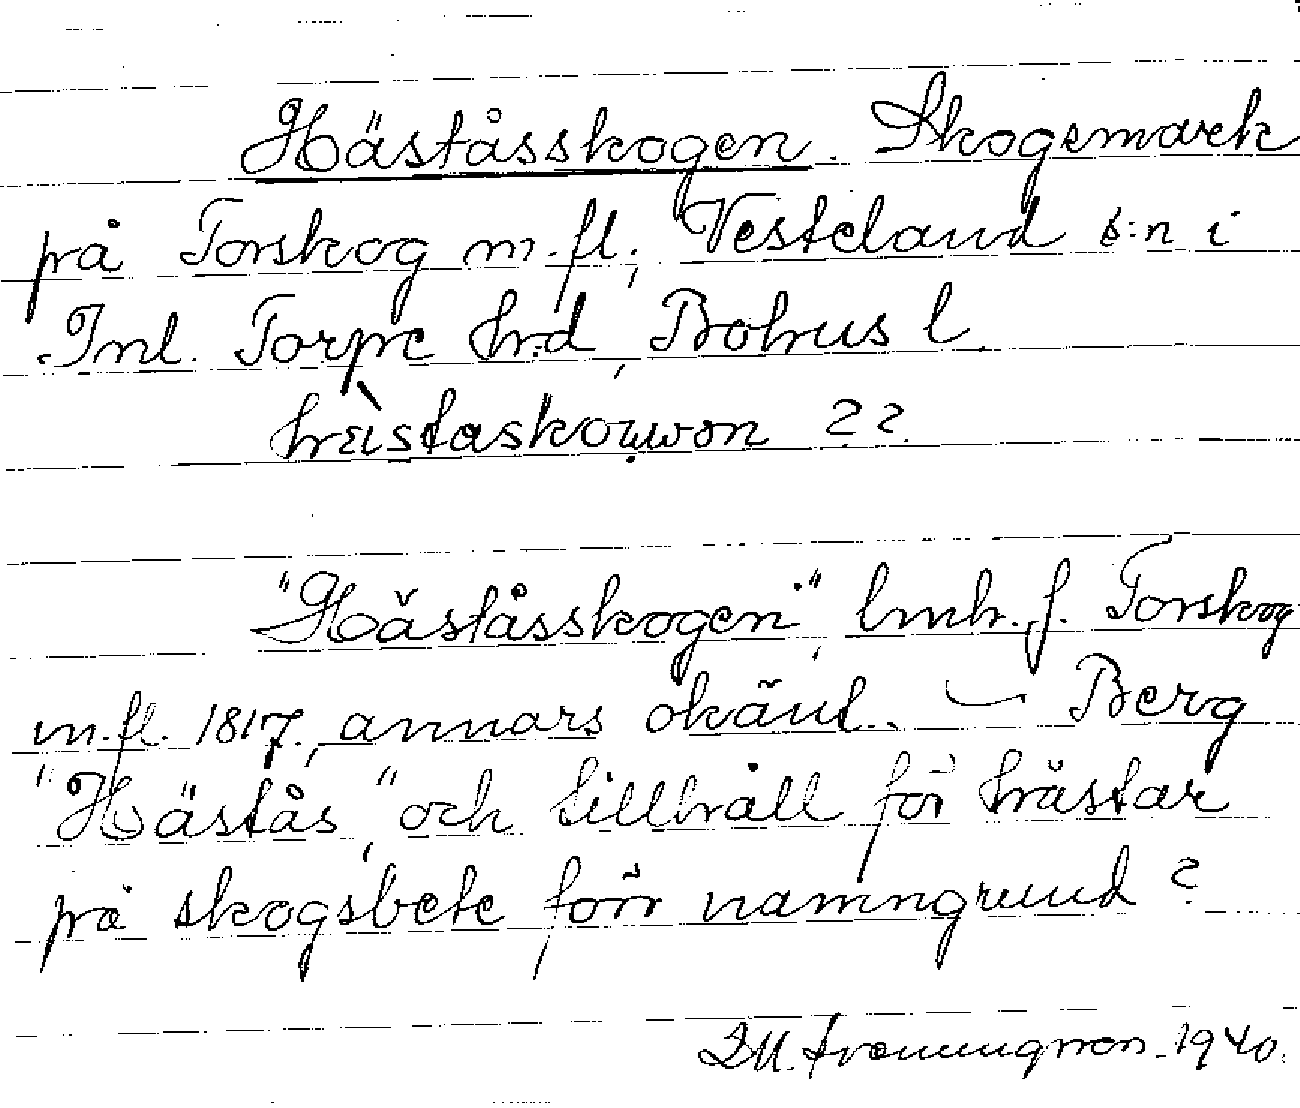 Häståsskogen. Skogsmark
på Torskog m.fl., Vesteland s:n i
Inl. Torpe hrd, Bohus l.
hästaskoɯwən ??
"Häståsskogen", lmh. f. Torskog
m.fl. 1817, annars okänt. — Berg
"Hästås," och tillhåll för hästar
på skogsbete förr namngrund?
1940.